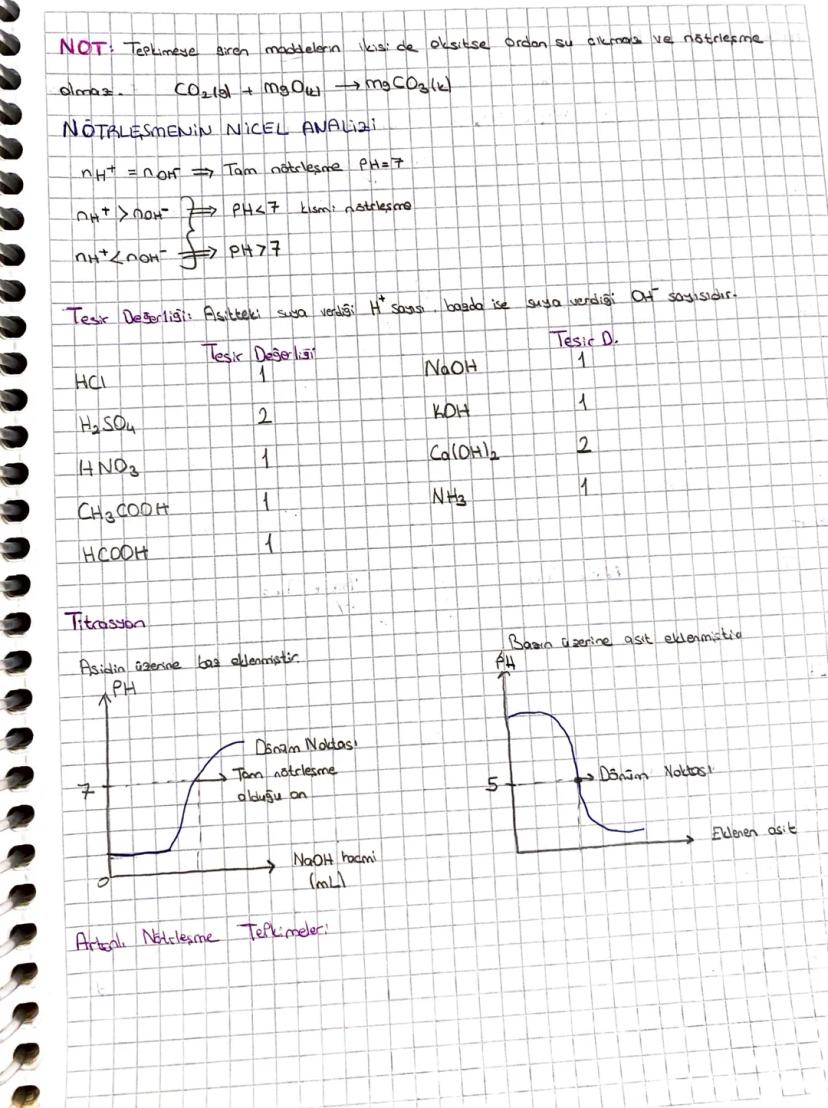 NOT: Tepkimeye giren maddelerin ikisi de oksitse ordan su çıkmaz ve nötrleşme
olmaz. CO₂(g) + mgO(k) → mgCO₃(k)
NÖTRLEŞMENİN NİCEL ANALİZİ
nH⁺ = nOH⁻ ⇒ Tam nötrleşme PH=7
nH⁺ > nOH⁻ ⇒ PH<7 kısmi nötrleşme
nH⁺ < nOH⁻ ⇒ PH>7
Tesir Değerliği: Asitteki suya verdiği H⁺ sayısı, bazda ise suya verdiği OH⁻ sayısıdır.
Tesir Değerliği Tesir D.
HCl 1 NaOH 1
H₂SO₄ 2 KOH 1
HNO₃ 1 Ca(OH)₂ 2
CH₃COOH 1 NH₃ 1
HCOOH 1
Titrasyon
Asidin üzerine baz eklenmiştir.
PH
Dönüm Noktası
7 → Tam nötrleşme
olduğu an
0
NaOH hacmi
(mL)
Bazın üzerine asit eklenmiştir
PH
5 → Dönüm Noktası
Eklenen asit
Artanlı Nötrleşme Tepkimeleri